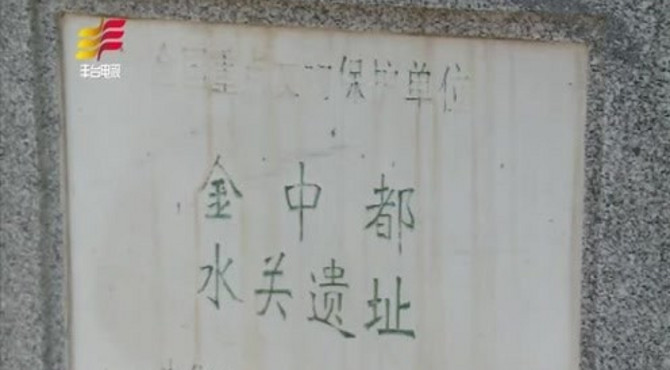 丰台电视
全国重点文物保护单位
金中都
水关遗址